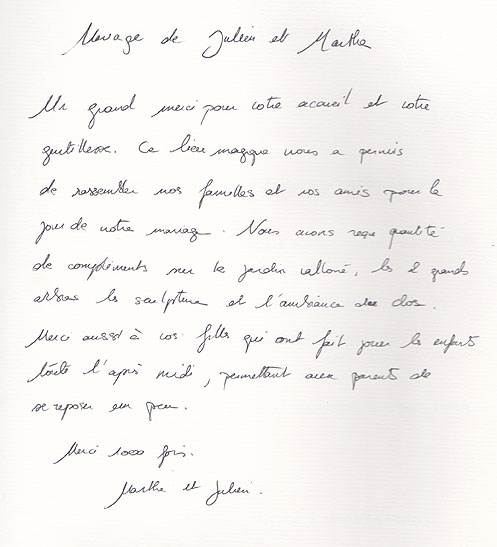 Mariage de Julien et Marthe
Un grand merci pour votre accueil et votre
gentillesse. Ce lieu magique nous a permis
de rassembler nos familles et nos amis pour le
jour de notre mariage. Nous avons reçu quantité
de compliments sur le jardin vallonné, les 2 grands
arbres les sculptures et l'ambiance des clos.
Merci aussi à vos filles qui ont fait jouer les enfants
toute l'après midi, permettant aux parents de
se reposer un peu.
Merci 1000 fois.
Marthe et Julien.